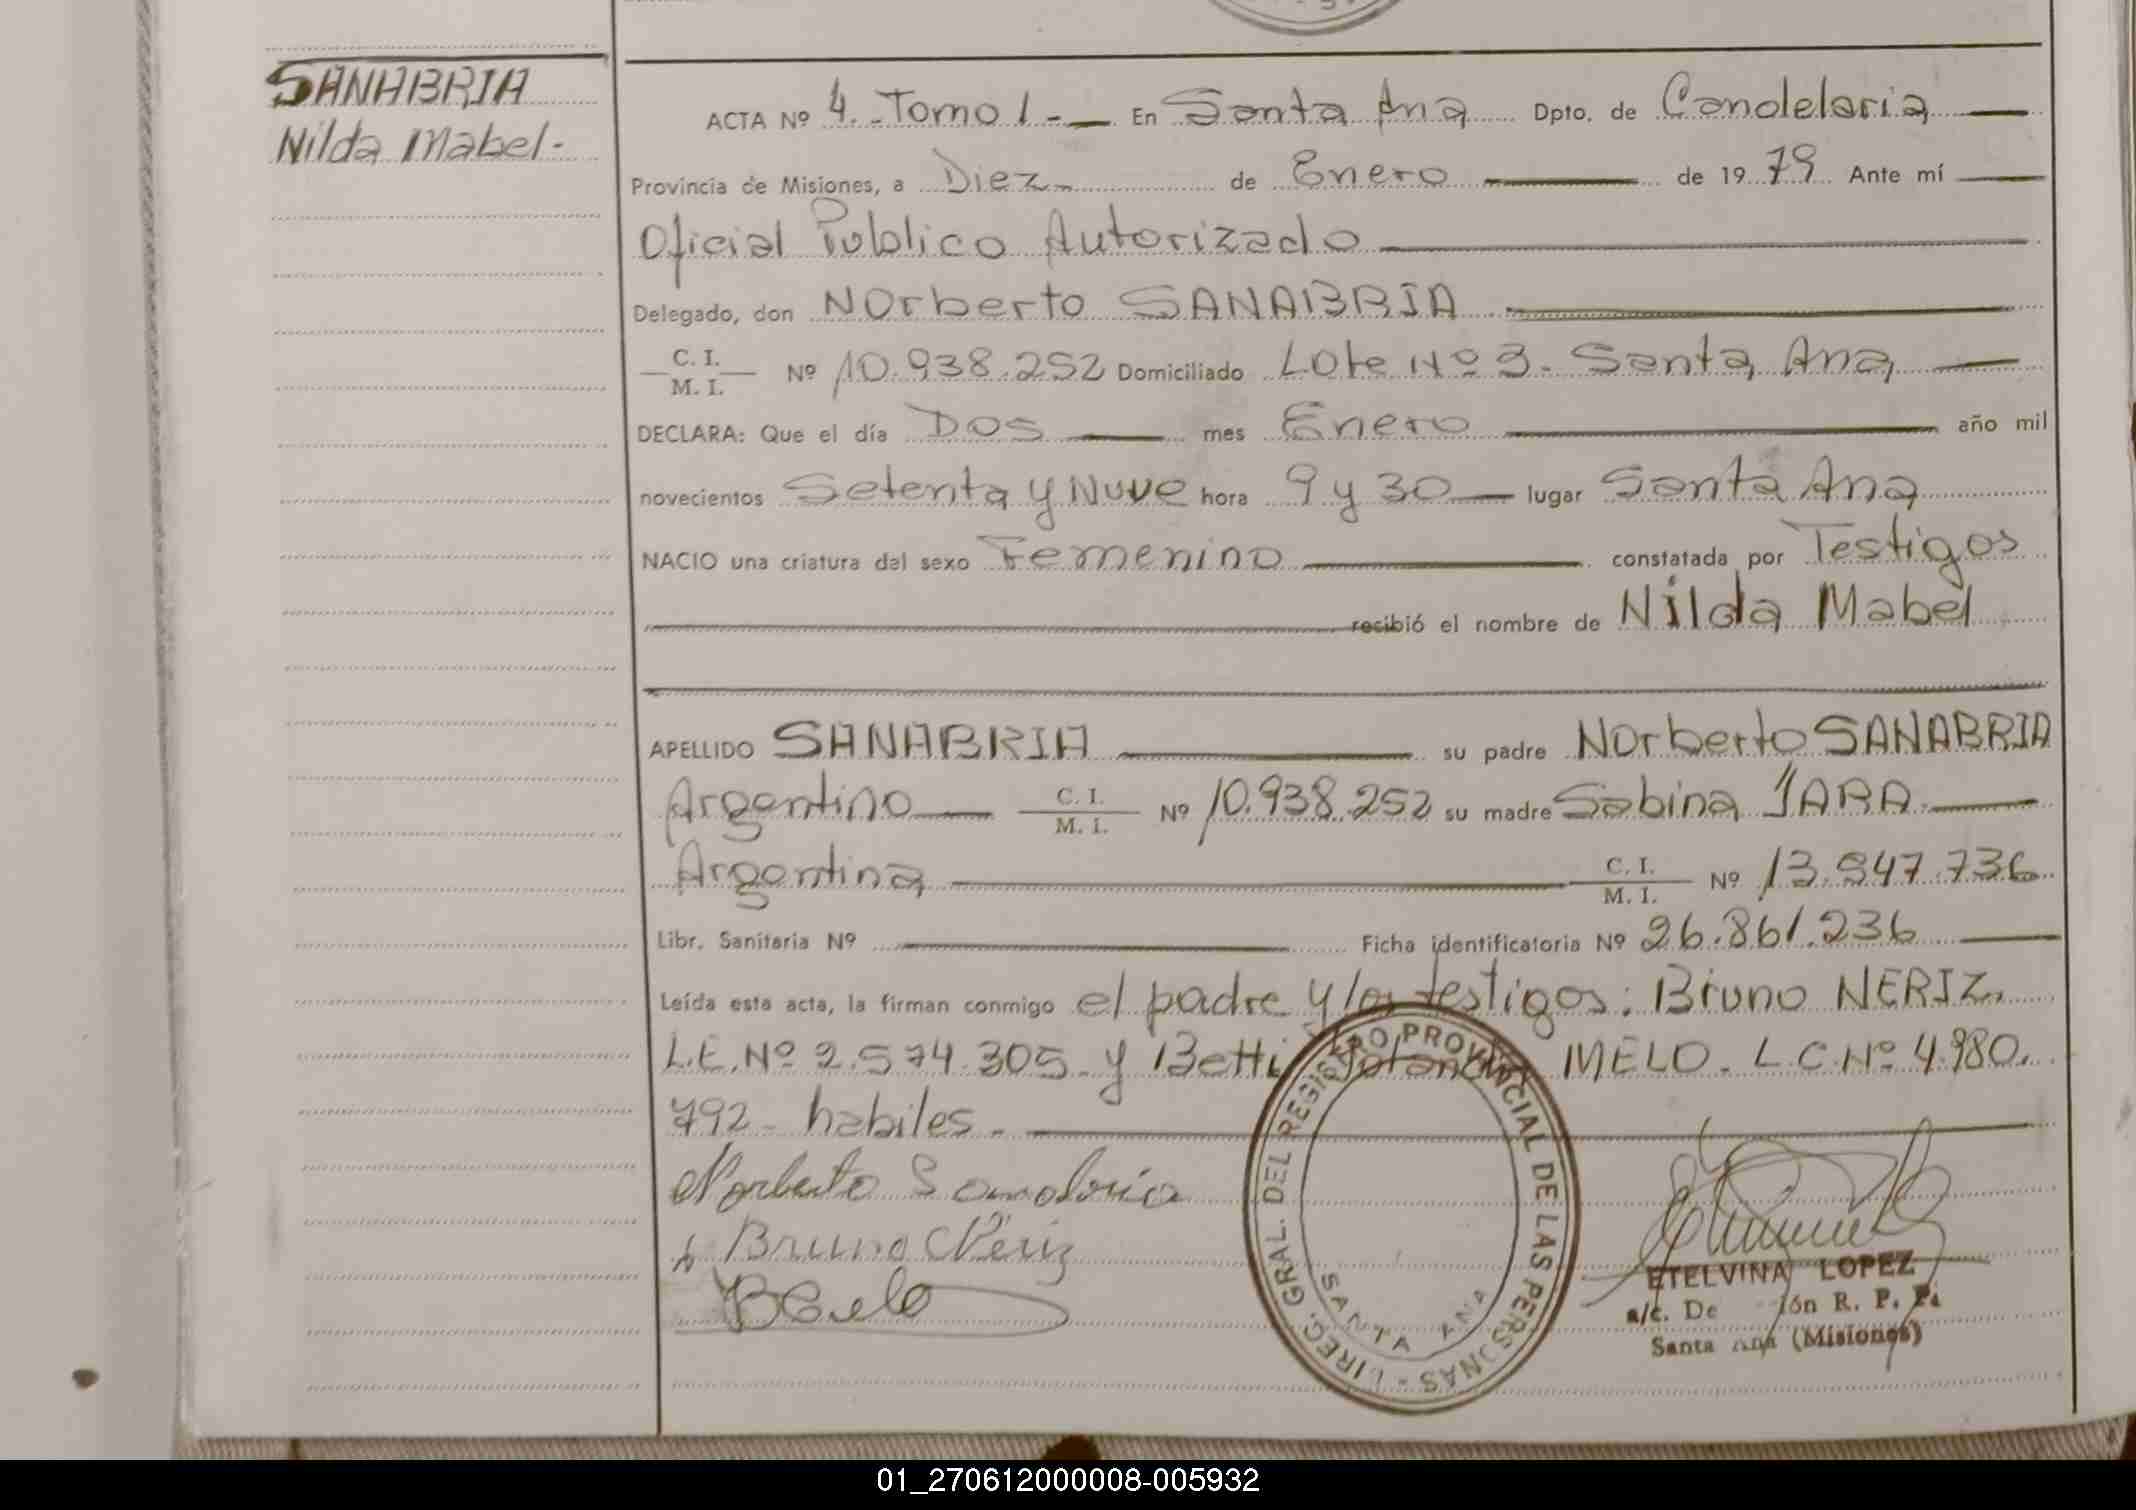 SANABRIA
Nilda Mabel-
ACTA Nº 4.- Tomo 1- En Santa Ana Dpto. de Candelaria
Provincia de Misiones, a Diez- de Enero de 1979 Ante mí
Oficial Publico Autorizado
Delegado, don NOrberto SANABRIA
C. I.
M. I. Nº 10.938.252 Domiciliado Lote Nº 3- Santa Ana,
DECLARA: Que el día Dos mes Enero año mil
novecientos Setenta y Nuve hora 9 y 30 lugar Santa Ana
NACIO una criatura del sexo Femenino constatada por Testigos
recibió el nombre de Nilda Mabel
APELLIDO SANABRIA su padre NOrberto SANABRIA
Argentino C. I. M. I. Nº 10.938.252 su madre Sabina JARA
Argentina C. I. M. I. Nº 13.947.736
Libr. Sanitaria Nº Ficha identificatoria Nº 26.861.236
Leída esta acta, la firman conmigo el padre y los testigos: Bruno NERIZ
L.E. Nº 2.574.305- y Betti MELO- L.C. Nº 4.980.
792- habiles-
Norberto Sanabria
Bruno Neriz
DIREC. GRAL. DEL REGISTRO PROVINCIAL DE LAS PERSONAS -
SANTA ANA
ETELVINA LOPEZ
a/c. De ión R. P. P.
Santa Ana (Misiones)
01_270612000008-005932